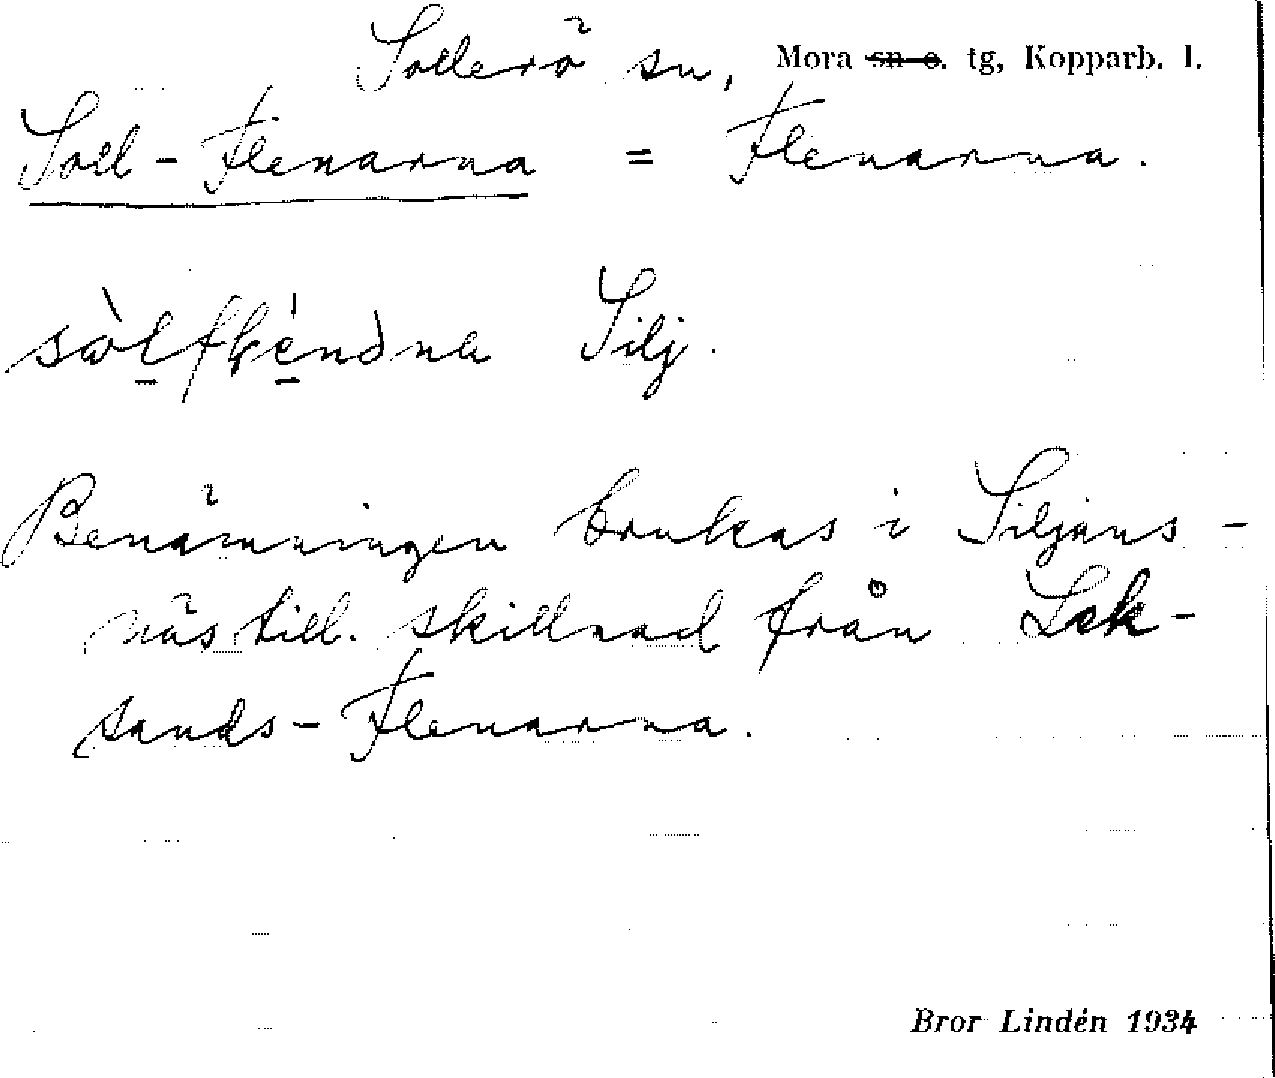 Sollerö sn, Mora sn o. tg, Kopparb. l.
Soll-Flenarna = Flenarna.
Silj.
Benämningen brukas i Siljans-
näs till. skillnad från Lek-
sands-Flenarna.
Bror Lindén 1934